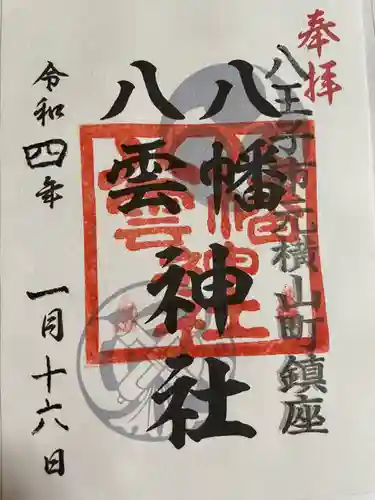 奉拝
八王子市元横山町鎮座
八幡
八雲
神社
令和四年
一月十六日